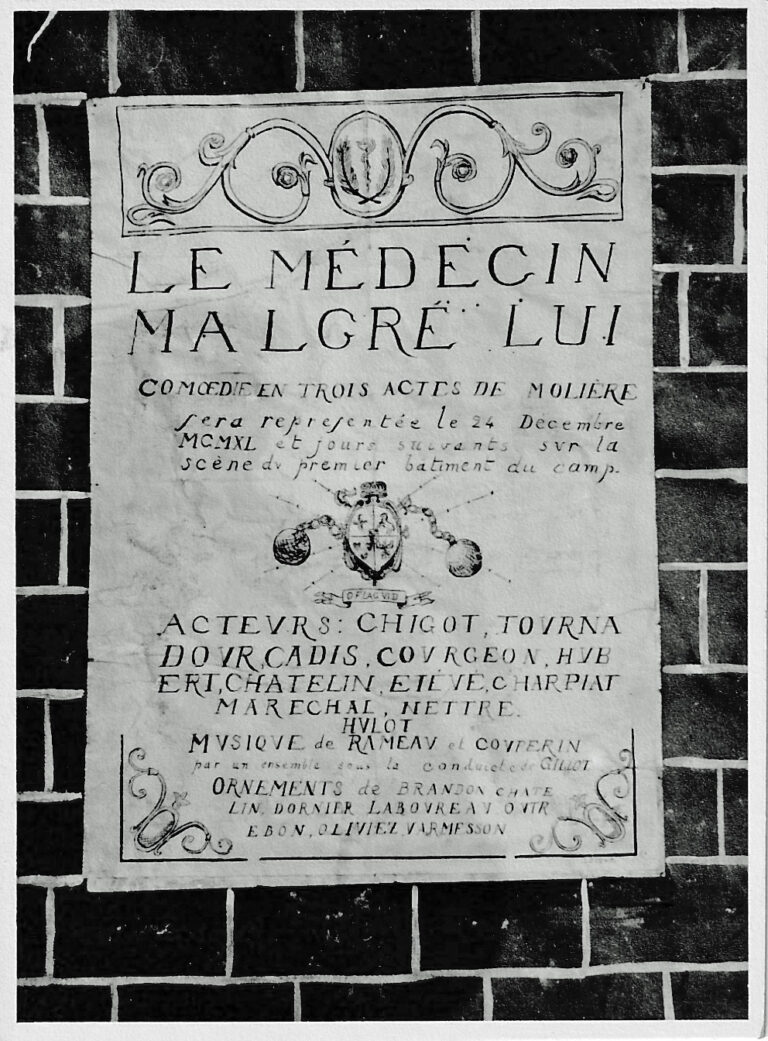 LE MÉDECIN
MALGRÉ LUI
COMŒDIE EN TROIS ACTES DE MOLIÈRE
sera representée le 24 Décembre
MCMXL et jours suivants svr la
scène dv premier batiment du camp.
OFLAG VI D
ACTEVRS: CHIGOT, TOVRNA
DOVR, CADIS, COVRGEON, HVB
ERT, CHATELIN, ETÉVÉ, CHARPIAT
MARECHAL, NETTRE.
HVLOT
MVSIQVE de RAMEAV et COVPERIN
par un ensemble sous la conduicte de GILLOT
ORNEMENTS de BRANDON CHATE
LIN, DORNIER LABOVREAV OVTR
EBON, OLIVIEZ, VARMESSON